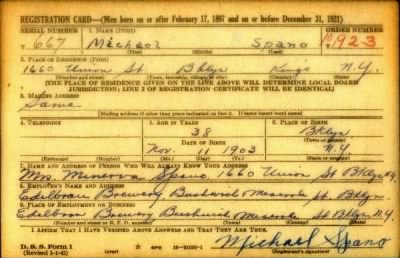 REGISTRATION CARD—(Men born on or after February 17, 1897 and on or before December 31, 1921)
SERIAL NUMBER 1. NAME (Print) ORDER NUMBER
667 Michael Spano 923
(First) (Middle) (Last)
2. PLACE OF RESIDENCE (Print)
1660 Union St Bklyn Kings N.Y.
(Number and street) (Town, township, village, or city) (County) (State)
[THE PLACE OF RESIDENCE GIVEN ON THE LINE ABOVE WILL DETERMINE LOCAL BOARD
JURISDICTION; LINE 2 OF REGISTRATION CERTIFICATE WILL BE IDENTICAL]
3. MAILING ADDRESS
Same
[Mailing address if other than place indicated on line 2. If same insert word same]
4. TELEPHONE 5. AGE IN YEARS 6. PLACE OF BIRTH
38 Bklyn
DATE OF BIRTH
Nov. 11 1903 N.Y.
7. NAME AND ADDRESS OF PERSON WHO WILL ALWAYS KNOW YOUR ADDRESS
Mrs. Minerva Spano 1660 Union St Bklyn N.Y.
8. EMPLOYER'S NAME AND ADDRESS
Edelbrau Brewery Bushwick Meserole St. Bklyn.
9. PLACE OF EMPLOYMENT OR BUSINESS
Edelbrau Brewery Bushwick Meserole St Bklyn N.Y.
I AFFIRM THAT I HAVE VERIFIED ABOVE ANSWERS AND THAT THEY ARE TRUE.
D. S. S. Form 1
(Revised 1-1-42) GPO Michael Spano
(Registrant's signature)